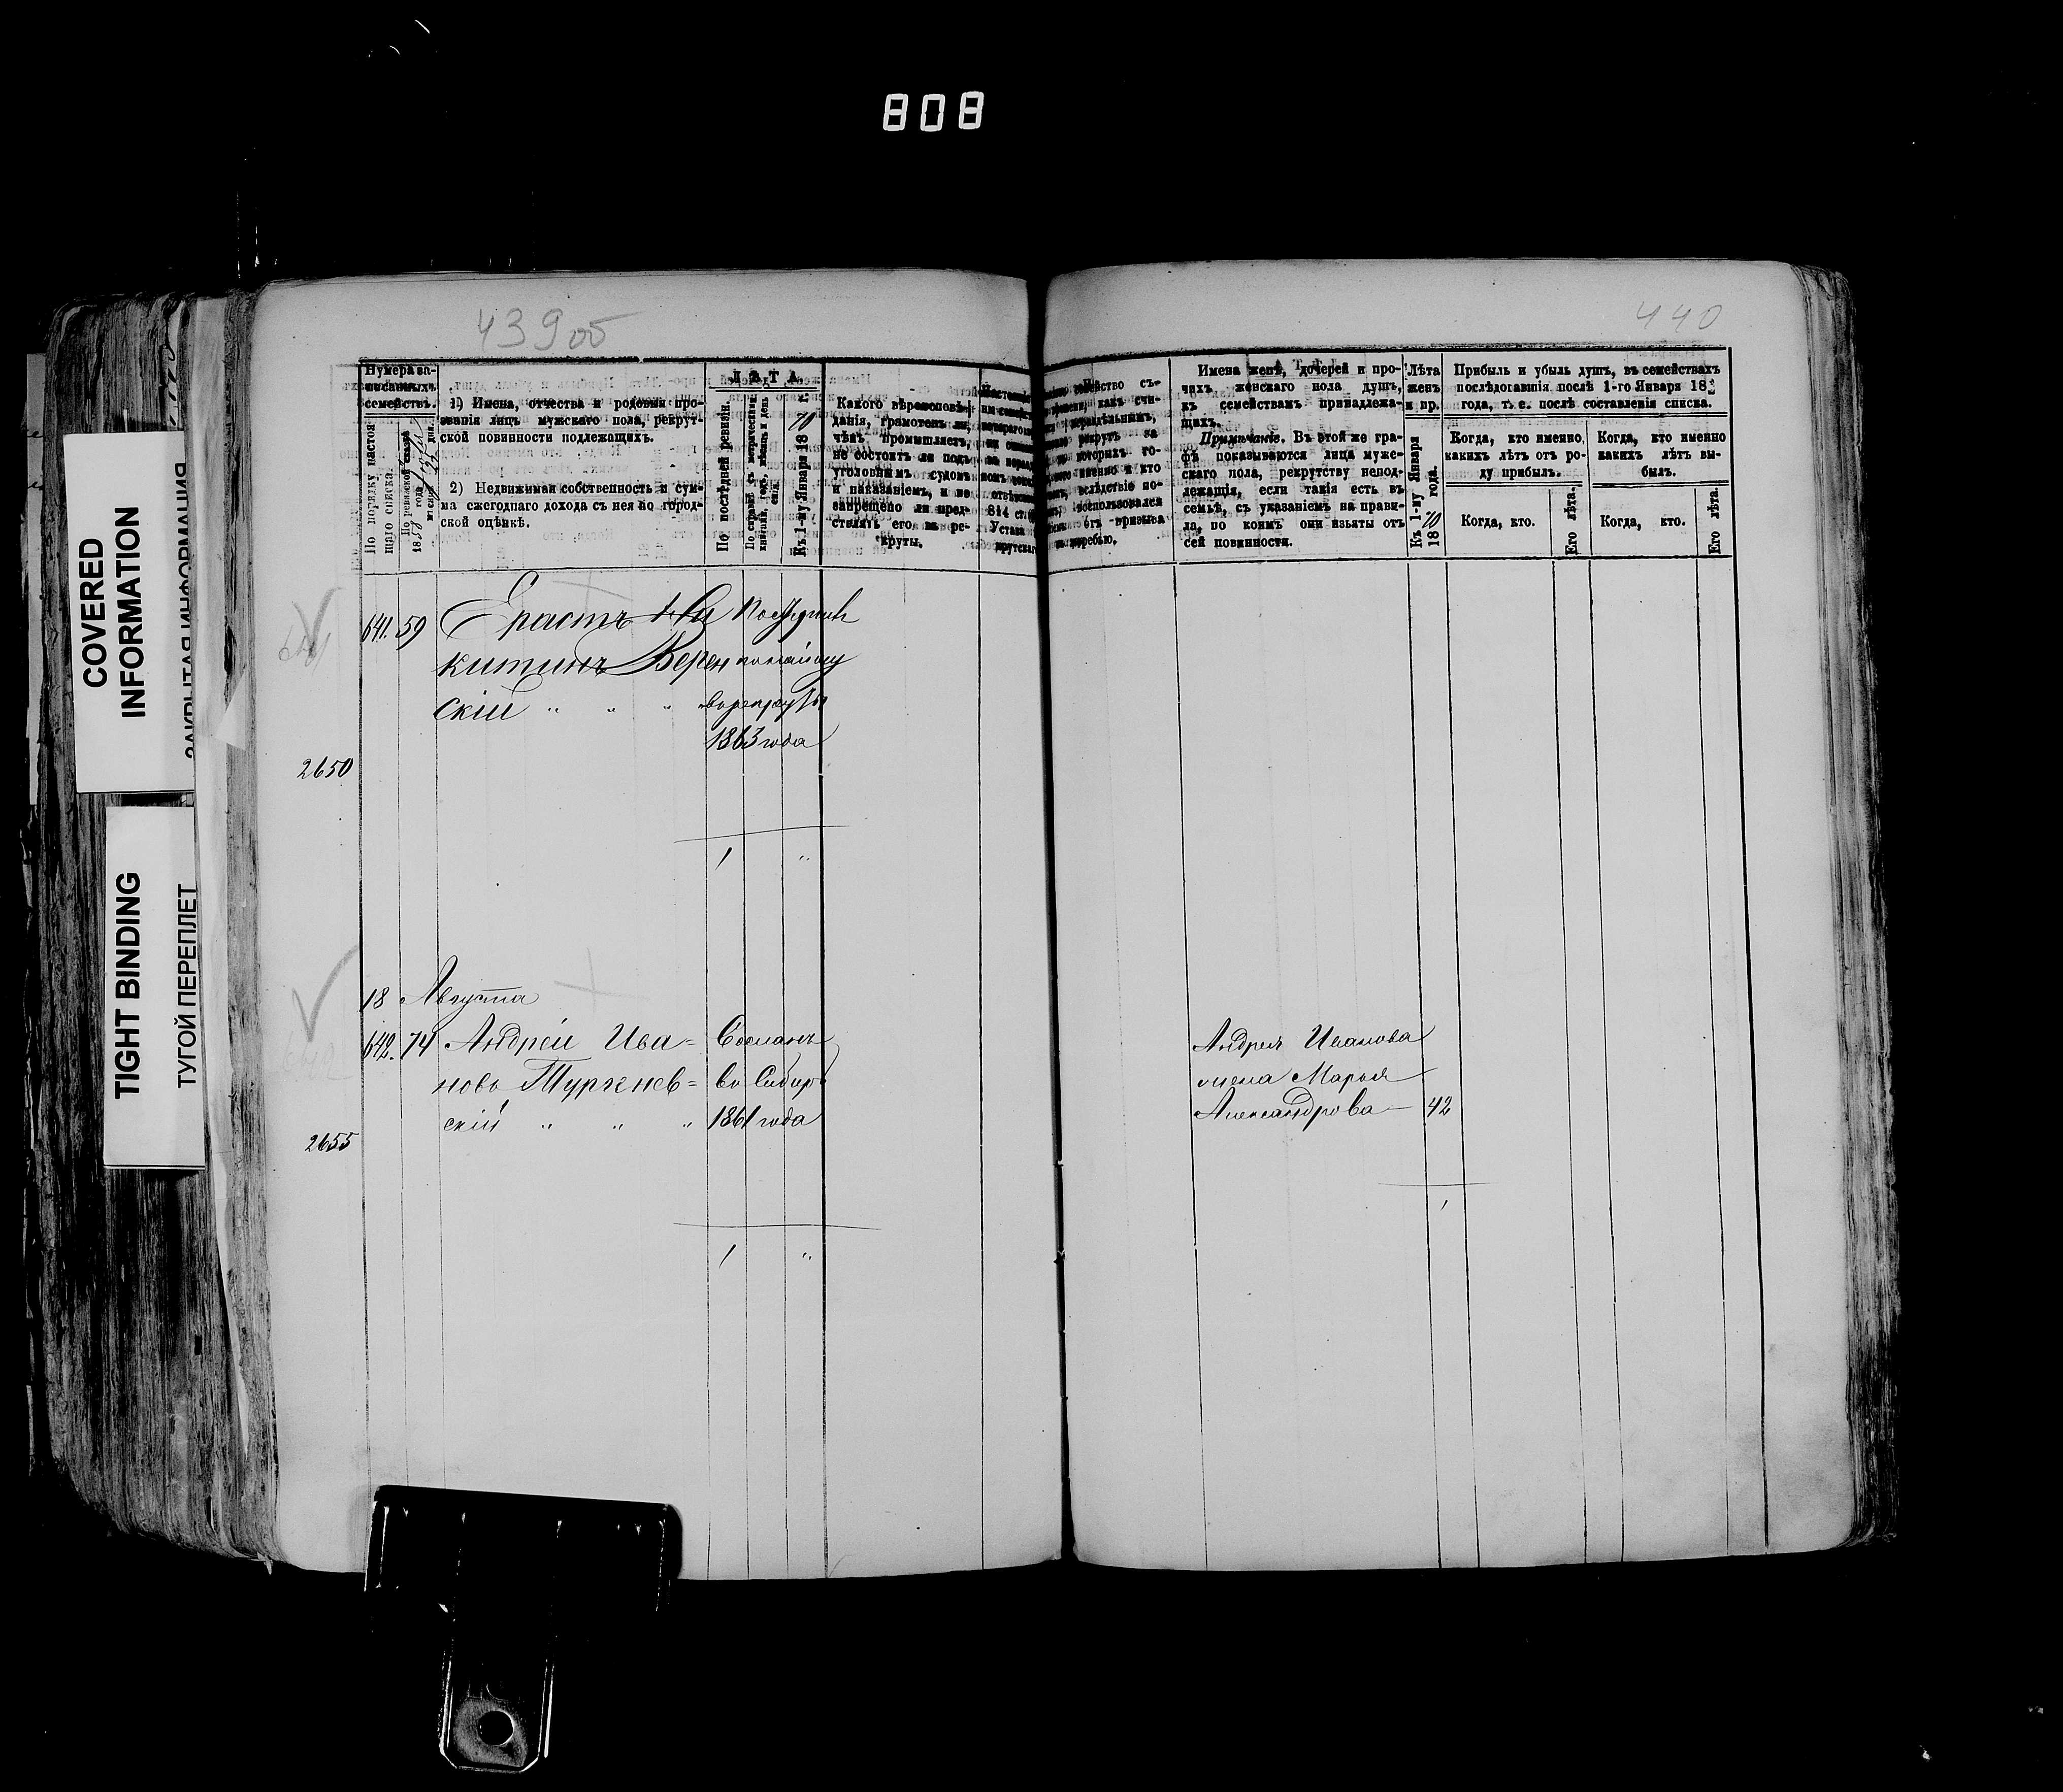 808
COVERED
INFORMATION
ЗАКРЫТАЯ ИНФОРМАЦИЯ
TIGHT BINDING
ТУГОЙ ПЕРЕПЛЕТ
439 об
440
Нумера за-
писанныхъ
семействъ.
По порядку настоя
щаго списка.
По ревизской сказкѣ
1858 года
1) Имена, отчества и родовыя про-
званія лицъ мужскаго пола, рекрут-
ской повинности подлежащихъ.
2) Недвижимая собственность и сум-
ма ежегоднаго дохода съ нея по город-
ской оцѣнкѣ.
ЛѢТА
По послѣдней ревизіи.
По справкѣ съ метрическими
книгами, годъ, мѣсяцъ и день
Къ 1-му Января 1870 г.
Какого вѣроисповѣ-
данія, грамотенъ ли,
чѣмъ промышляетъ,
не состоитъ ли подъ
уголовнымъ судомъ
и наказаніемъ, и не
запрещено ли пред-
ставлять его въ ре-
круты.
814 ст.
Устава
Имена женъ, дочерей и про-
чихъ женскаго пола душъ,
къ семействамъ принадлежа-
щихъ.
Примѣчаніе. Въ этой же гра-
фѣ показываются лица муже-
скаго пола, рекрутству непод-
лежащія, если такія есть въ
семьѣ, съ указаніемъ на прави-
ла, по коимъ они изъяты отъ
сей повинности.
Лѣта
женъ
и пр.
Къ 1-му Января
1870 года.
Прибыль и убыль душъ, въ семействахъ
послѣдовавшія послѣ 1-го Января 18
года, т. е. послѣ составленія списка.
Когда, кто именно,
какихъ лѣтъ отъ ро-
ду прибылъ.
Когда, кто именно
какихъ лѣтъ вы-
былъ.
Когда, кто.
Его лѣта.
Когда, кто.
Его лѣта.
641. 59 Ерастъ Ни
китинъ Верен по найму
скій " " " въ рекруты
1863 года
2650
1 "
18 Августа
642. 74 Андрей Ива= Сосланъ
новъ Тургенев= въ Сибирь
скій " " " 1861 года
Андрея Иванова
жена Марья
Александрова — 42
2655
1
1 "